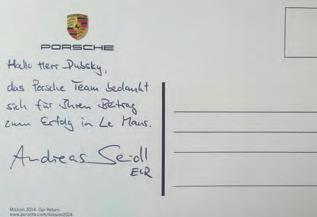 PORSCHE
Hallo Herr Dubsky,
das Porsche Team bedankt
sich für Ihren Beitrag
zum Erfolg in Le Mans.
Andreas Seidl
Mission 2014. Our Return.
www.porsche.com/mission2014